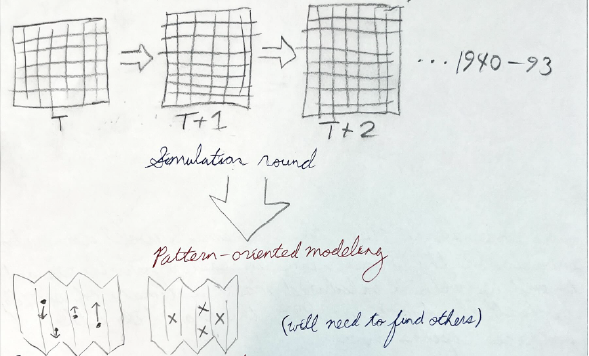 ... 1940-93
T
T+1
T+2
Simulation round
Pattern-oriented modeling
(will need to find others)